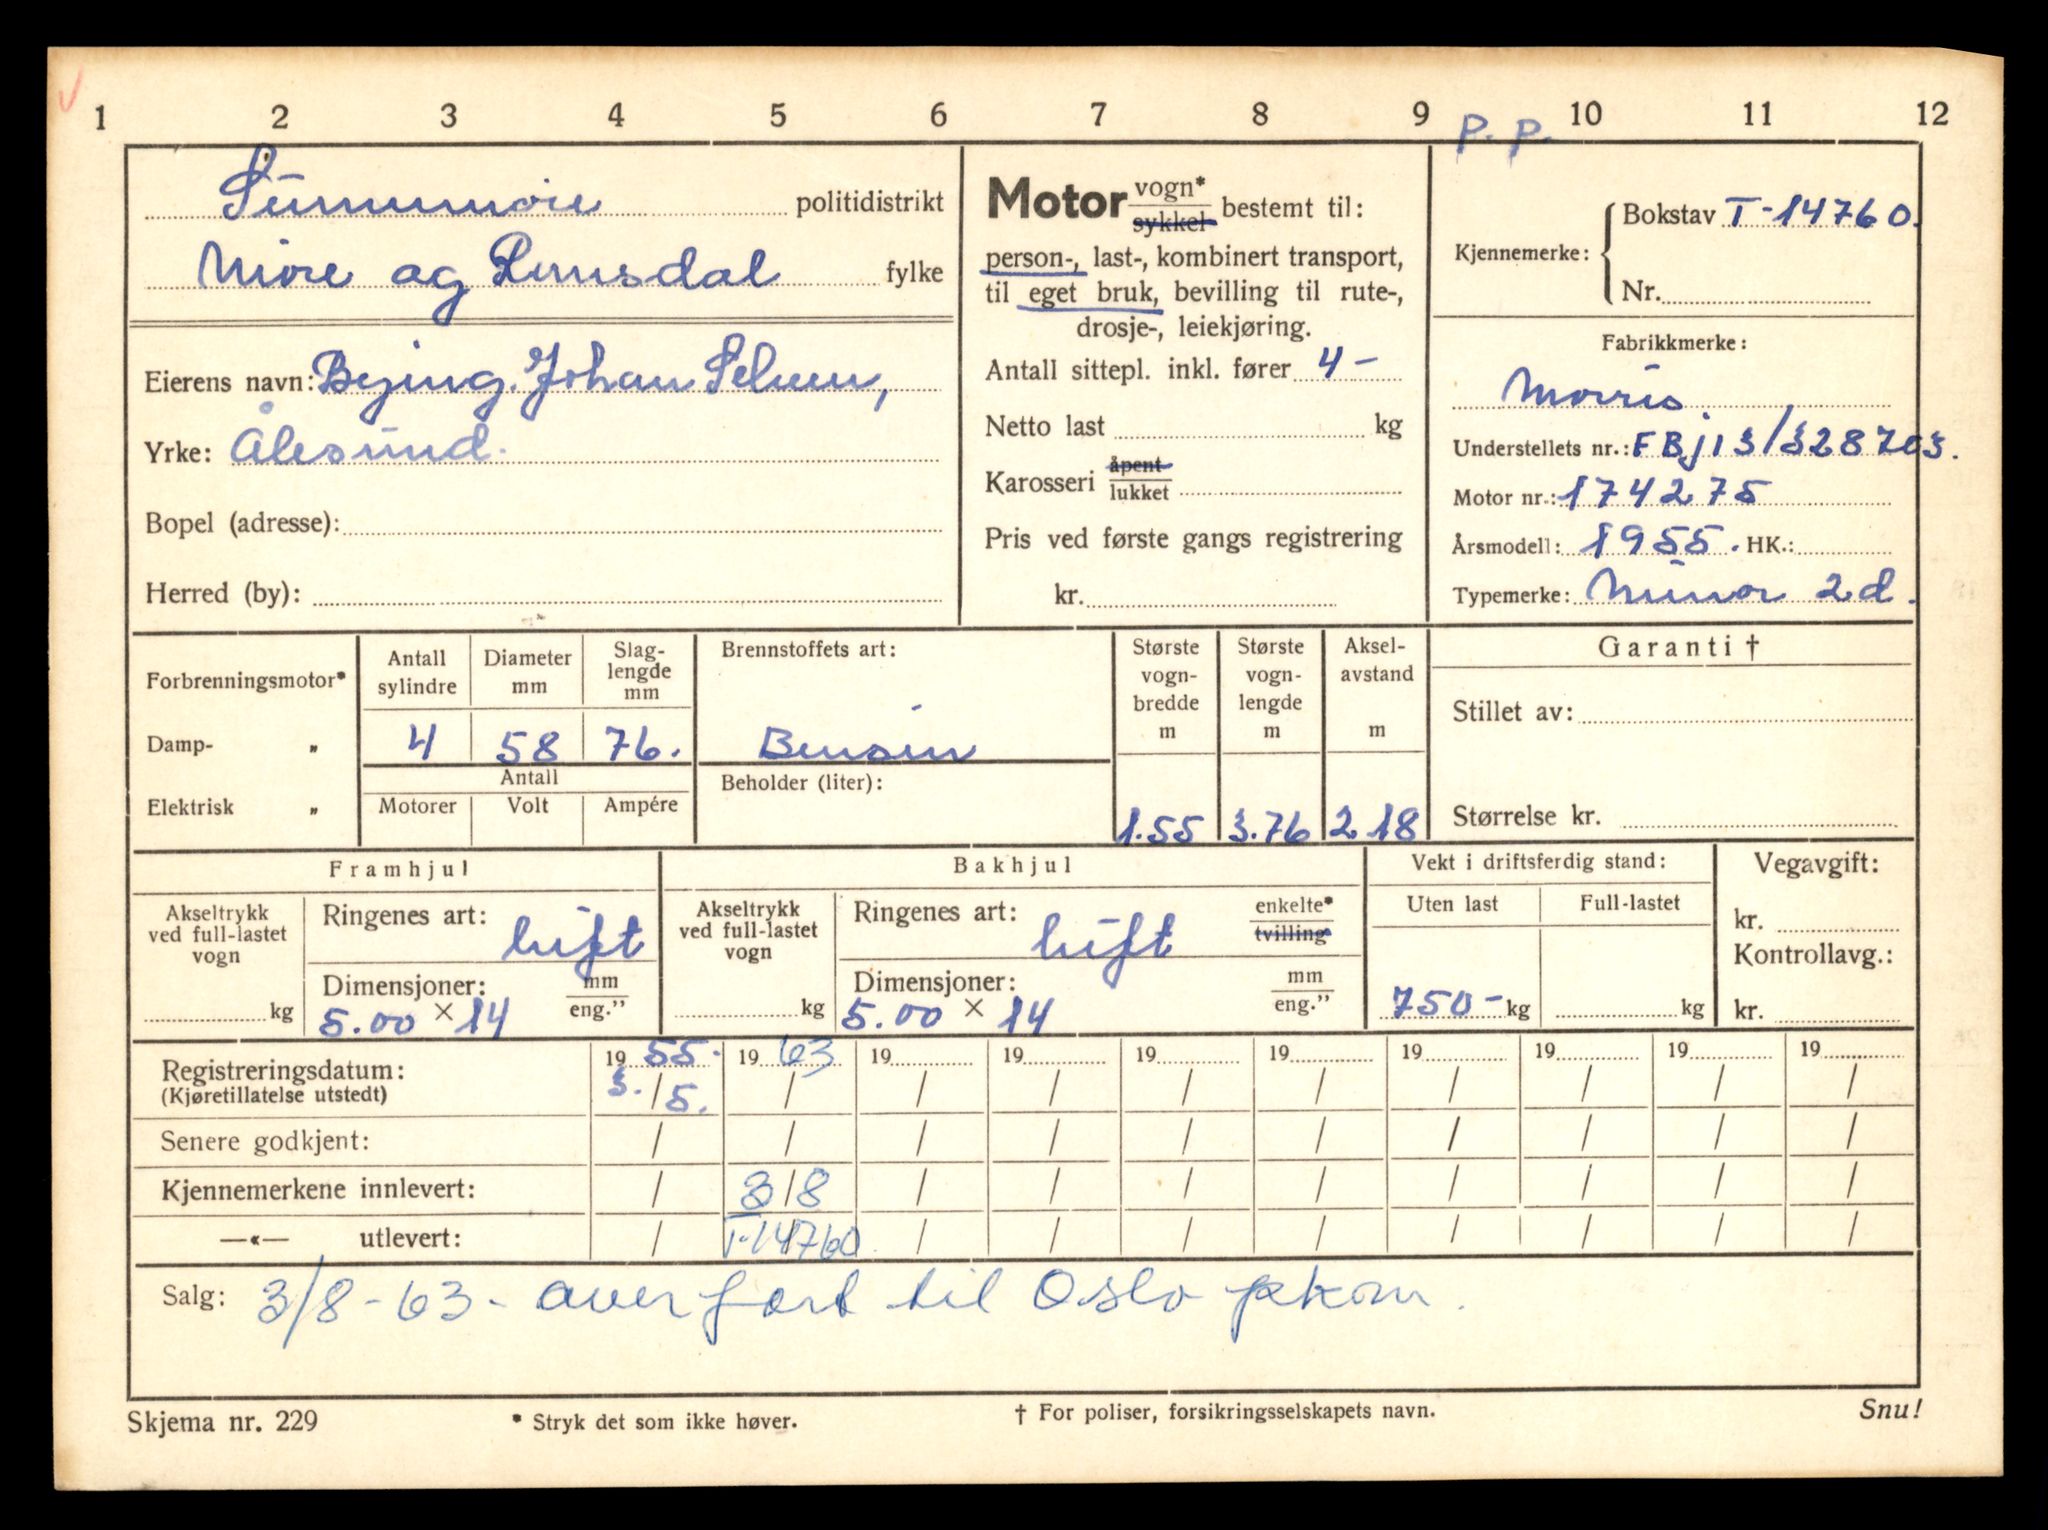 1 2 3 4 5 6 7 8 9 10 11 12
P. P.
Sunnmøre politidistrikt
Møre og Romsdal fylke
Eierens navn: Johan
Yrke: Ålesund.
Bopel (adresse):
Herred (by):
Motor vogn* sykkel bestemt til:
person-, last-, kombinert transport,
til eget bruk, bevilling til rute-,
drosje-, leiekjøring.
Antall sittepl. inkl. fører 4 -
Netto last kg
Karosseri åpent lukket
Pris ved første gangs registrering
kr.
Kjennemerke: Bokstav T-14760.
Nr.
Fabrikkmerke:
Morris.
Understellets nr.: FBj13/328703.
Motor nr.: 1742275
Årsmodell: 1955. HK.:
Typemerke: Minor 2d.
Forbrenningsmotor*
Damp- "
Elektrisk "
Antall sylindre
Diameter mm
Slag-lengde mm
4 58 76.
Antall
Motorer Volt Ampére
Brennstoffets art:
Bensin
Beholder (liter):
Største vogn-bredde m
1.55
Største vogn-lengde m
3.76
Aksel-avstand m
2.18
Garanti †
Stillet av:
Størrelse kr.
Framhjul
Akseltrykk ved full-lastet vogn
kg
Ringenes art: luft
Dimensjoner: mm eng."
5.00 × 14
Bakhjul
Akseltrykk ved full-lastet vogn
kg
Ringenes art: luft enkelte* tvilling
Dimensjoner: mm eng."
5.00 × 14
Vekt i driftsferdig stand:
Uten last Full-lastet
750- kg kg
Vegavgift:
kr.
Kontrollavg.:
kr.
Registreringsdatum:
(Kjøretillatelse utstedt)
19 55. 19 63 19 19 19 19 19 19 19 19
3. / 5. / / / / / / / / /
Senere godkjent: / / / / / / / / / /
Kjennemerkene innlevert: / 3/8 / / / / / / / /
—«— utlevert: / T-14760 / / / / / / / /
Salg: 3/8-63- overført til Oslo pkom.
Skjema nr. 229
* Stryk det som ikke høver.
† For poliser, forsikringsselskapets navn.
Snu!